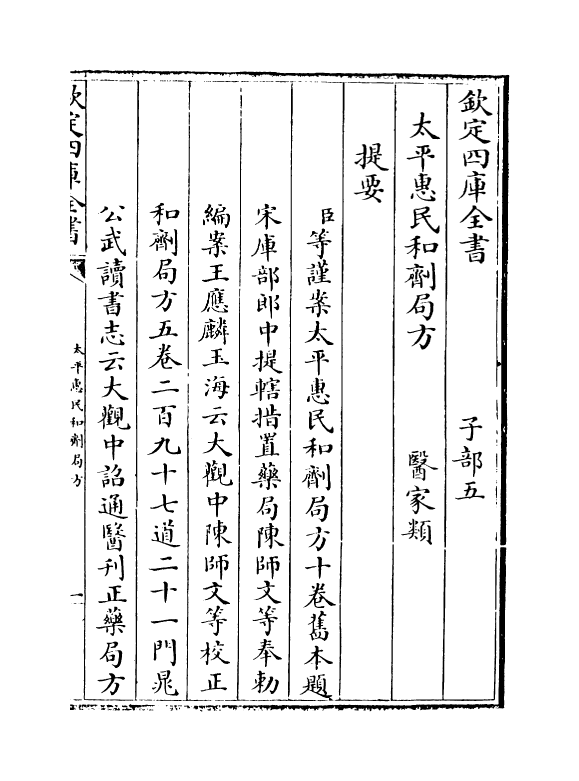 欽定四庫全書　　　子部五
太平惠民和劑局方　　醫家類
提要
臣等謹案太平惠民和劑局方十卷舊本題
宋庫部郎中提轄措置藥局陳師文等奉勅
編案王應麟玉海云大觀中陳師文等校正
和劑局方五卷二百九十七道二十一門晁
公武讀書志云大觀中詔通醫刊正藥局方
欽定四庫全書
太平惠民和劑局方
一